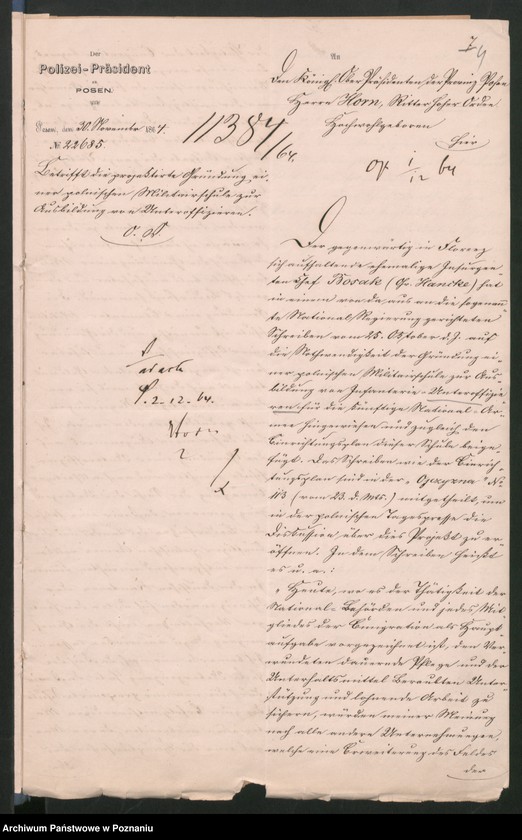 7
4
Der
Polizei-Präsident
zu
POSEN.
Posen, den 30. November 1864.
№ 22685.
11387/64.
Betrifft die projektirte Gründung ei-
ner polnischen Militairschule zur
Ausbildung von Unteroffizieren.
An
Den Königl. Ober Präsidenten der Provinz Posen
Herrn Horn, Ritter hoher Orden
Hochwohlgeboren
Hier
1/12 64
ad acta
P. 2.-12.-64.
Horn
Der gegenwärtig in Florenz
sich aufhaltende ehemalige Insurgen-
ten Chef Bosak (Gr. Hancke) hat
in einem von da aus an die sogenann-
te National-Regierung gerichteten
Schreiben vom 25. Oktober d. J. auf
die Nothwendigkeit der Gründung ei-
ner polnischen Militairschule zur Aus-
bildung von Infanterie-Unteroffizie
ren für die künftige National-Ar-
mee hingewiesen und zugleich den
Einrichtungsplan dieser Schule beige-
fügt. Das Schreiben wie der Einrich-
tungsplan sind in der „Ojczyzna" No
113 (vom 23. d. Mts.) mitgetheilt, um
in der polnischen Tagespresse die
Diskussion über dies Projekt zu er-
öffnen. In dem Schreiben heißt
es u. a.:
„Heute, wo es der Thätigkeit der
National-Behörden und jedes Mit-
gliedes der Emigration als Haupt-
aufgabe vorgezeichnet ist, den Ver-
wundeten dauernde Pflege und der
Unterhaltsmittel Beraubten Unter-
stützung und lohnende Arbeit zu
sichern, würden meiner Meinung
nach alle andere Unternehmungen,
welche eine Erweiterung des Feldes
der
Archiwum Państwowe w Poznaniu